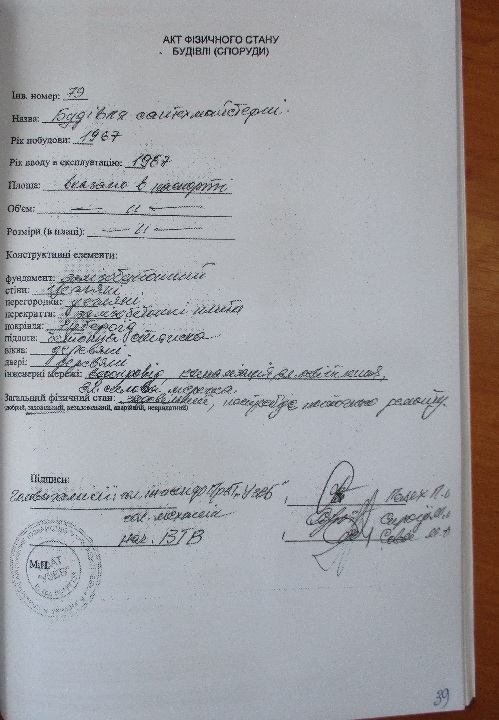 АКТ ФІЗИЧНОГО СТАНУ
БУДІВЛІ (СПОРУДИ)
Інв. номер: 79
Назва: Будівля сантехмайстерні.
Рік побудови: 1967
Рік вводу в експлуатацію: 1967
Площа: вказано в паспорті
Об'єм: — " —
Розміри (в плані): — " —
Конструктивні елементи:
фундамент: залізобетонний
стіни: цегляні
перегородки: цегляні
перекриття: залізобетонні плита
покрівля:
підлоги: бетонна стяжка
вікна: дерев'яні
двері: дерев'яні
інженерні мережі: водопровід, каналізація,
мережа.
Загальний фізичний стан: задовільний, потребує поточного ремонту.
(добрий, задовільний, незадовільний, аварійний, непридатний)
Підписи:
гол. інженер ПрАТ "УЗЕБ"
гол. механік
нач. ВТВ
М.П.
39